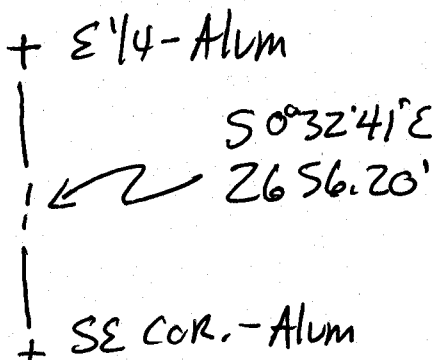 E 1/4 - Alum
S 0°32'41"E
2656.20'
SE COR. - Alum